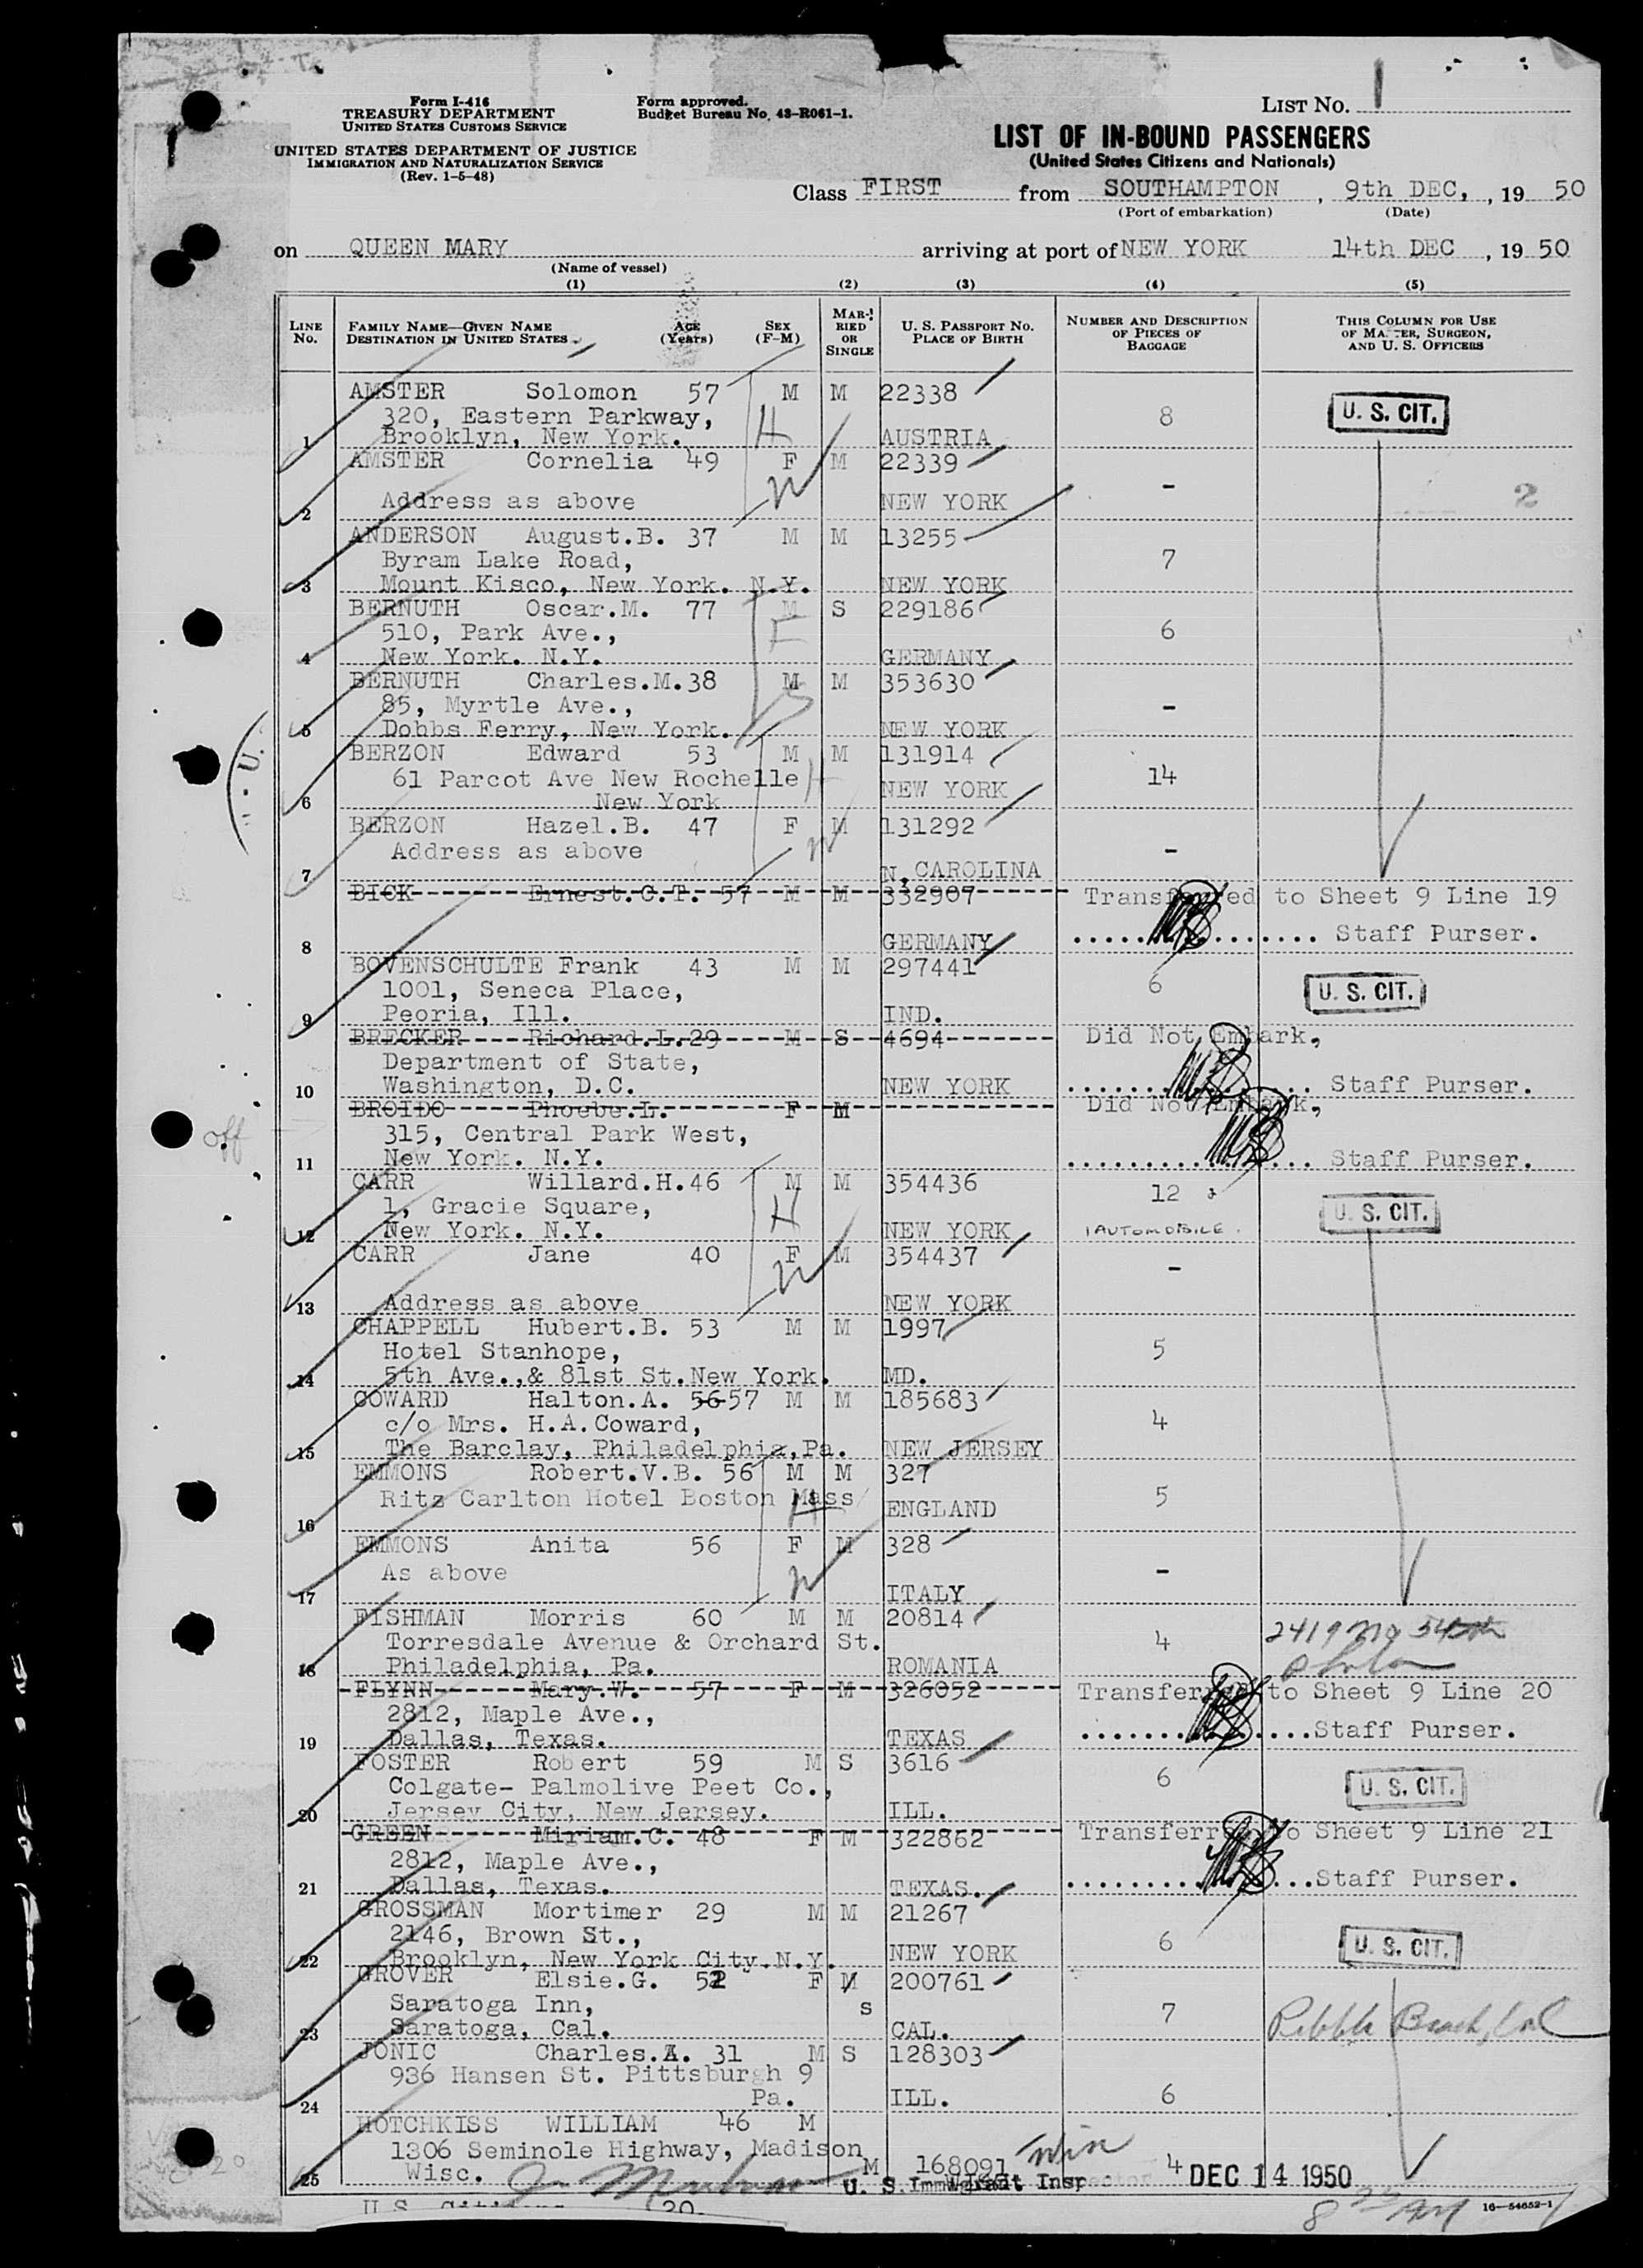 Form I-416
TREASURY DEPARTMENT
UNITED STATES CUSTOMS SERVICE
UNITED STATES DEPARTMENT OF JUSTICE
IMMIGRATION AND NATURALIZATION SERVICE
(Rev. 1-5-48)
Form approved.
Budget Bureau No. 43-R061-1.
LIST No. 1
LIST OF IN-BOUND PASSENGERS
(United States Citizens and Nationals)
Class FIRST from SOUTHAMPTON, 9th DEC, , 19 50
(Port of embarkation) (Date)
on QUEEN MARY arriving at port of NEW YORK 14th DEC , 19 50
(Name of vessel)
(1) (2) (3) (4) (5)
LINE No. FAMILY NAME—GIVEN NAME DESTINATION IN UNITED STATES AGE (Years) SEX (F-M) MARRIED OR SINGLE U. S. PASSPORT No. PLACE OF BIRTH NUMBER AND DESCRIPTION OF PIECES OF BAGGAGE THIS COLUMN FOR USE OF MASTER, SURGEON, AND U. S. OFFICERS
AMSTER Solomon 57 M M 22338
320, Eastern Parkway, 8 U. S. CIT.
1 Brooklyn, New York. H AUSTRIA
AMSTER Cornelia 49 F M 22339
W - 2
2 Address as above NEW YORK
ANDERSON August.B. 37 M M 13255
Byram Lake Road, 7
3 Mount Kisco, New York. N.Y. NEW YORK
BERNUTH Oscar.M. 77 M S 229186
510, Park Ave., F 6
4 New York. N.Y. GERMANY
BERNUTH Charles.M. 38 M M 353630
85, Myrtle Ave., S -
5 Dobbs Ferry, New York. NEW YORK
BERZON Edward 53 M M 131914
61 Parcot Ave New Rochelle H NEW YORK 14
6 New York
BERZON Hazel.B. 47 F M 131292
Address as above W -
7 N. CAROLINA
BICK Ernest.C.T. 57 M M 332907 Transferred to Sheet 9 Line 19
8 GERMANY Staff Purser.
BOVENSCHULTE Frank 43 M M 297441
1001, Seneca Place, 6 U. S. CIT.
9 Peoria, Ill. IND.
BRECKER Richard.L. 29 M S 4694 Did Not Embark,
Department of State,
10 Washington, D.C. NEW YORK Staff Purser.
BROIDO Phoebe.L. F M Did Not Embark,
off 315, Central Park West,
11 New York. N.Y. Staff Purser.
CARR Willard.H. 46 M M 354436 12
1, Gracie Square, H U. S. CIT.
12 New York. N.Y. NEW YORK 1 AUTOMOBILE.
CARR Jane 40 F M 354437
W -
13 Address as above NEW YORK
CHAPPELL Hubert.B. 53 M M 1997
Hotel Stanhope, 5
14 5th Ave.,& 81st St.New York. MD.
COWARD Halton.A. 56-57 M M 185683
c/o Mrs. H.A.Coward, 4
15 The Barclay, Philadelphia,Pa. NEW JERSEY
EMMONS Robert.V.B. 56 M M 327
Ritz Carlton Hotel Boston Mass H ENGLAND 5
16
EMMONS Anita 56 F M 328
As above W -
17 ITALY
FISHMAN Morris 60 M M 20814
Torresdale Avenue & Orchard St. 4 2419 54th
18 Philadelphia, Pa. ROMANIA
FLYNN Mary.W. 57 F M 326052 Transferred to Sheet 9 Line 20
2812, Maple Ave.,
19 Dallas, Texas. TEXAS Staff Purser.
FOSTER Robert 59 M S 3616
Colgate- Palmolive Peet Co., 6 U. S. CIT.
20 Jersey City, New Jersey. ILL.
GREEN Miriam.C. 48 F M 322862 Transferred to Sheet 9 Line 21
2812, Maple Ave.,
21 Dallas, Texas. TEXAS. Staff Purser.
GROSSMAN Mortimer 29 M M 21267
2146, Brown St., 6 U. S. CIT.
22 Brooklyn, New York City.N.Y. NEW YORK
GROVER Elsie.G. 52 F M 200761
Saratoga Inn, s 7 Pebble Beach, Cal
23 Saratoga, Cal. CAL.
JONIC Charles.A. 31 M S 128303
936 Hansen St. Pittsburgh 9
24 Pa. ILL. 6
HOTCHKISS WILLIAM 46 M
1306 Seminole Highway, Madison M 168091 Win 4
25 Wisc. U. S. Immigrant Inspector DEC 14 1950
U.S. Citizens 20. 8 16-54652-1